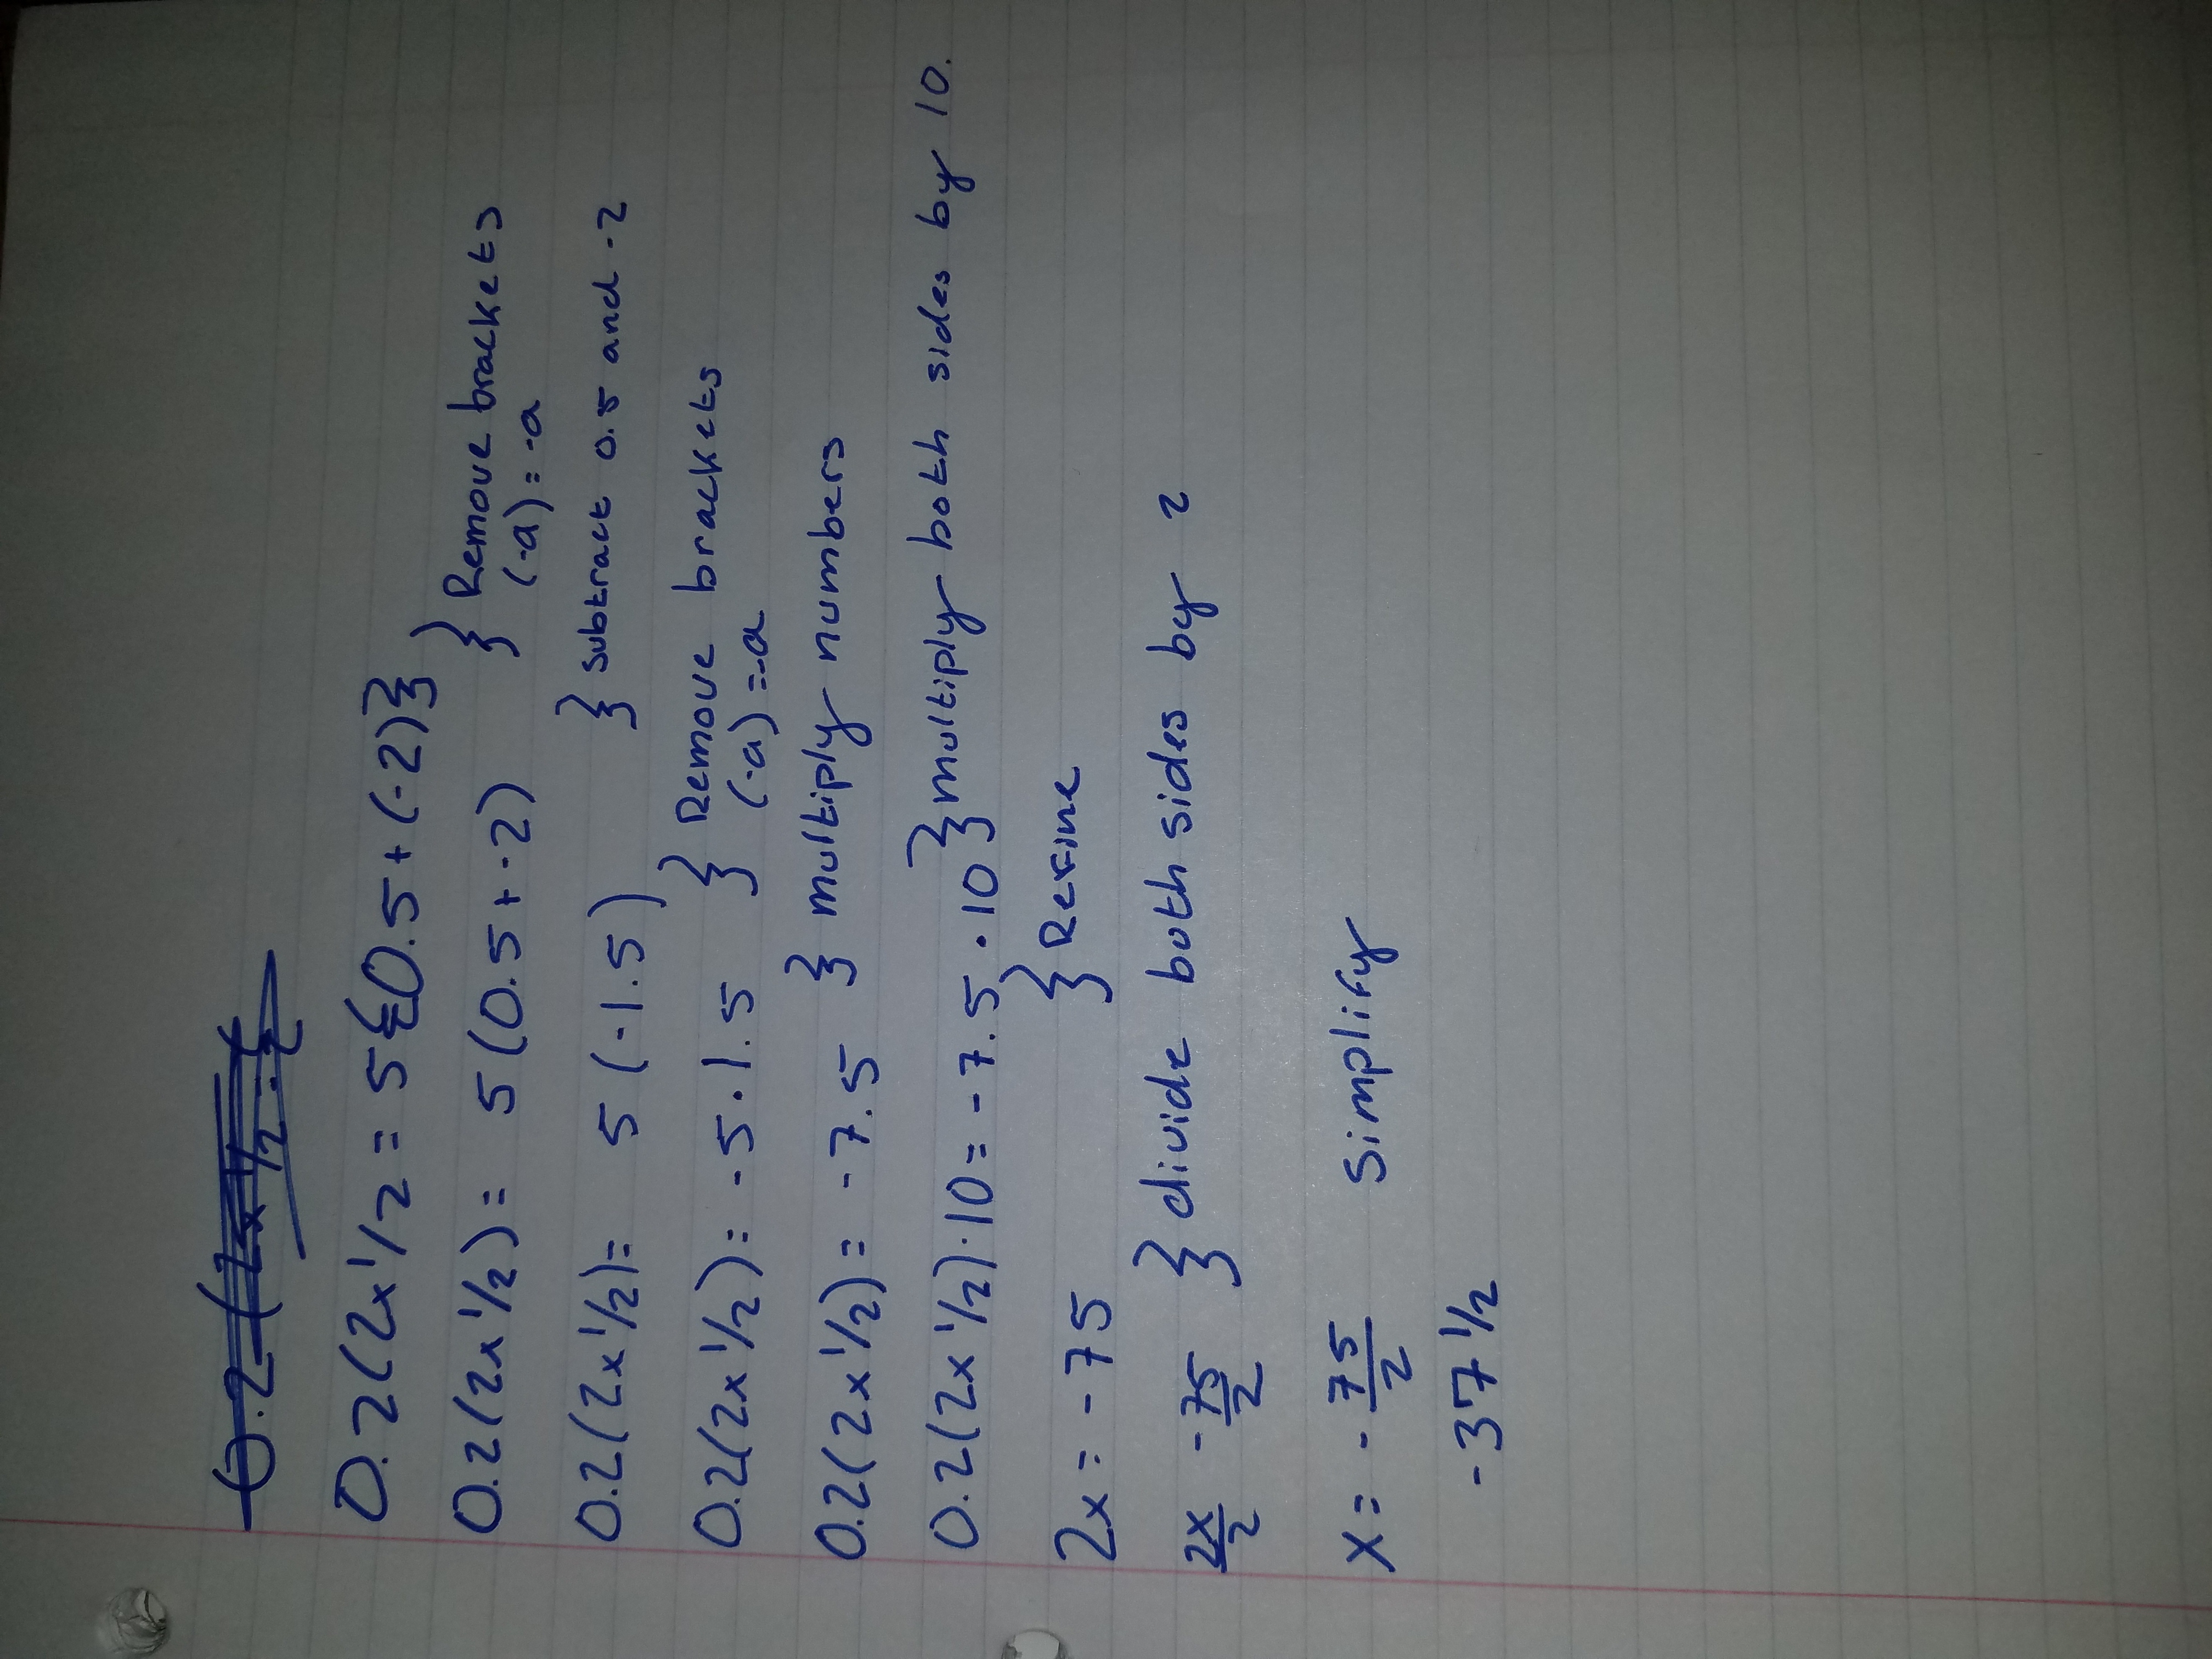 0.2(2x 1/2 = 5{0.5+(-2)}
0.2(2x 1/2) = 5(0.5+-2) } Remove brackets
(-a) = -a
0.2(2x 1/2) = 5(-1.5) } Subtract 0.5 and -2
0.2(2x 1/2) = -5·1.5 } Remove brackets
(-a) = -a
0.2(2x 1/2) = -7.5 } multiply numbers
0.2(2x 1/2)·10 = -7.5·10 } multiply both sides by 10.
2x = -75 } Refine
2x/2 -75/2 } divide both sides by 2
x = -75/2 Simplify
-37 1/2